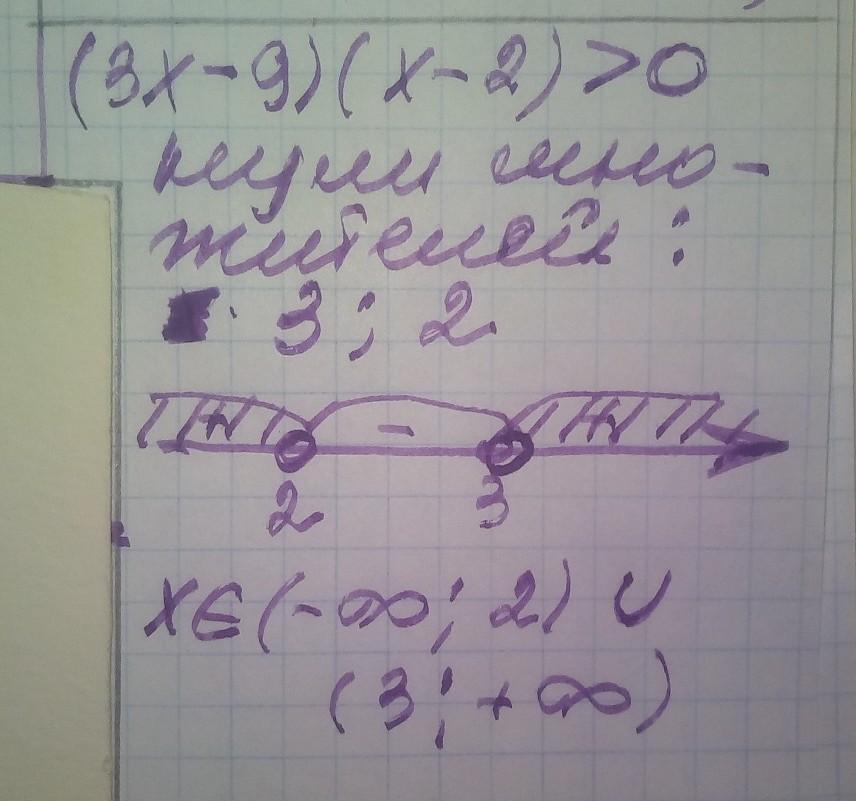 (3x-9)(x-2)>0
нули мно-
жителей:
3; 2
+ - +
2 3
x∈(-∞; 2) ∪
(3; +∞)